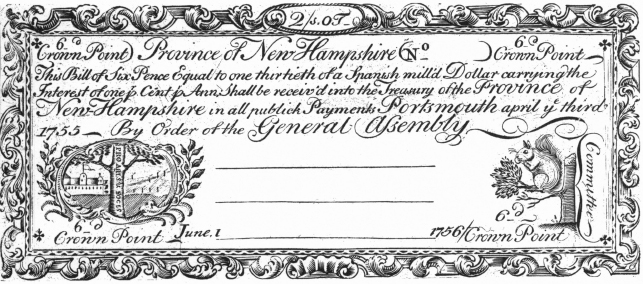 2/s.O.T.
6.d Crown Point) Province of New Hampshire (No ) 6.d Crown Point
This Bill of Six Pence Equal to one thirtieth of a Spanish mill'd Dollar carrying the
Interest of one p Cent p Ann. Shall be receiv'd into the Treasury of the Province of
New-Hampshire in all publick Payments Portsmouth april ye third
1755 By Order of the General Assembly
Committee
6-d
Crown Point June.1 1756
6-d
Crown Point